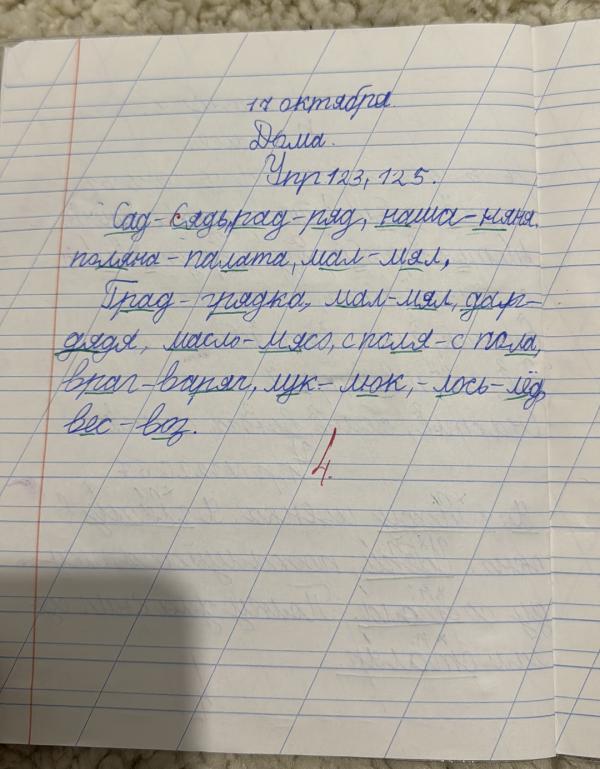 17 октября.
Дома.
Упр 123, 125.
Сад-Сядь, рад-ряд, наша-няня.
поляна-палата, мал-мял,
Град-грядка, мал-мял, дар-
дядя, масло-мясо, с поля-с пола,
враг-варяг, лук-люк,-лось-лёд,
вес-воз.
4.